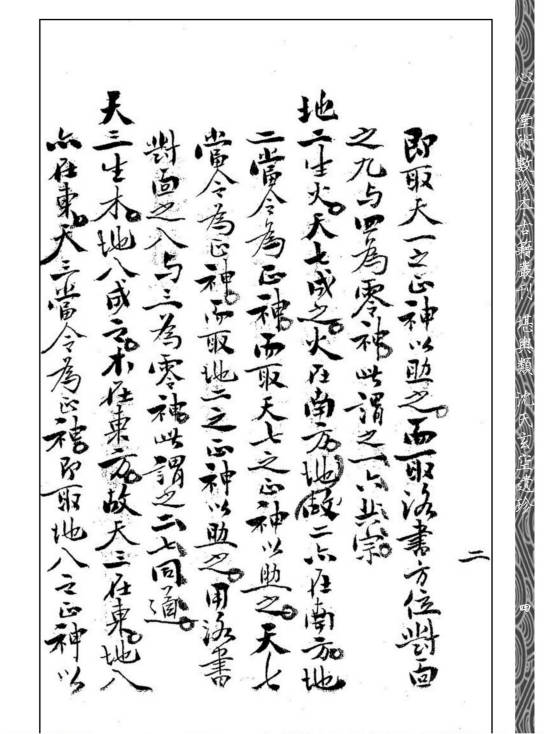 心一堂術數珍本古籍叢刊 堪輿類 沈氏玄空遺珍
四
二
即取天一之正神以助之而取洛書方位對面
之九与四為零神此謂之一六共宗
地二生火天七成之火在南方地故二亦在南方地
二當令為正神而取天七之正神以助之天七
當令為正神而取地二之正神以助之用洛書
對面之八与三為零神此謂之二七同道
天三生木地八成之木在東方故天三在東地八
亦在東天三當令為正神即取地八之正神以